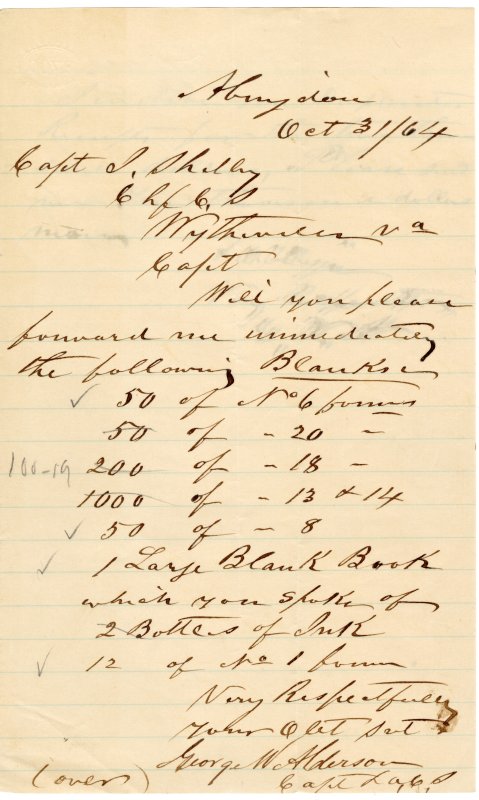 Abingdon
Oct 31/64
Capt J. Shelby
Chf C. S
Wytheville Va
Capt
Will you please
forward me immediately
the following Blanks
✓ 50 of No 6 forms
50 of " 20 "
100-19 200 of " 18 "
1000 of " 13 & 14
✓ 50 of " 8
✓ 1 Large Blank Book
which you spoke of
2 Bottles of Ink
✓ 12 of No 1 form
Very Respectfully
your Obt Svt
George W. Alderson
Capt & a, C. S
(over)